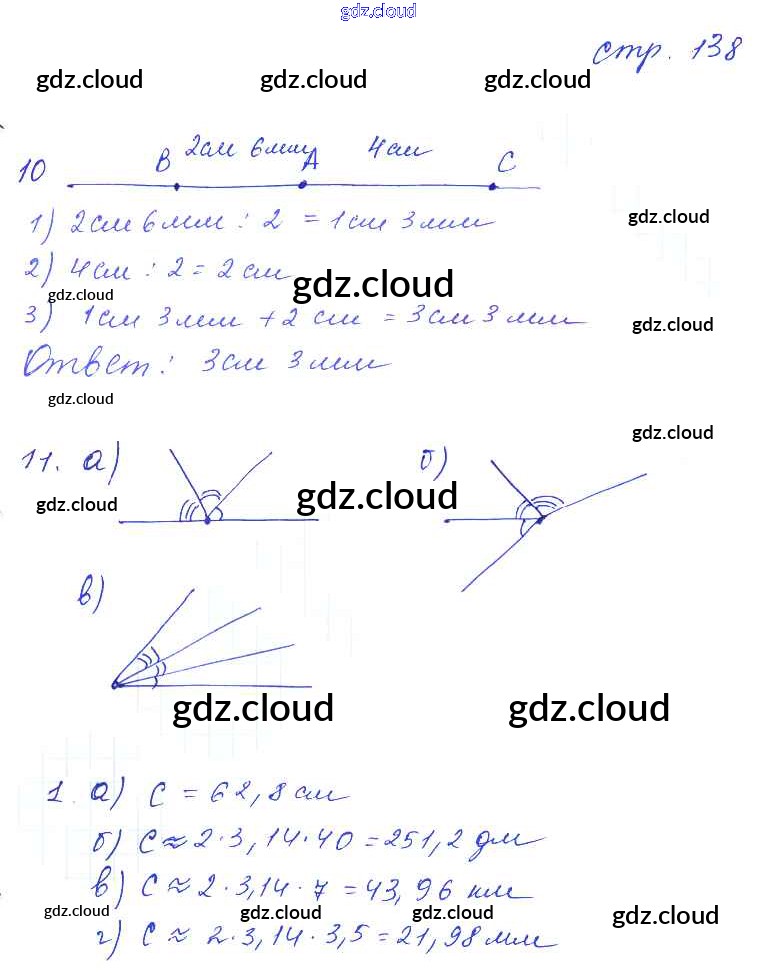 gdz.cloud
стр. 138
gdz.cloud gdz.cloud gdz.cloud
10 В 2см 6мм А 4см С
1) 2см 6мм : 2 = 1см 3мм
gdz.cloud
2) 4см : 2 = 2см
gdz.cloud
gdz.cloud
3) 1см 3мм + 2 см = 3см 3мм
gdz.cloud
Ответ: 3см 3мм
gdz.cloud
gdz.cloud
11. а) б)
gdz.cloud gdz.cloud
в)
gdz.cloud gdz.cloud
1. а) С = 62,8см
б) С ≈ 2·3,14·40 = 251,2 дм
в) С ≈ 2·3,14·7 = 43,96 км
gdz.cloud gdz.cloud gdz.cloud gdz.cloud
г) С ≈ 2·3,14·3,5 = 21,98мм